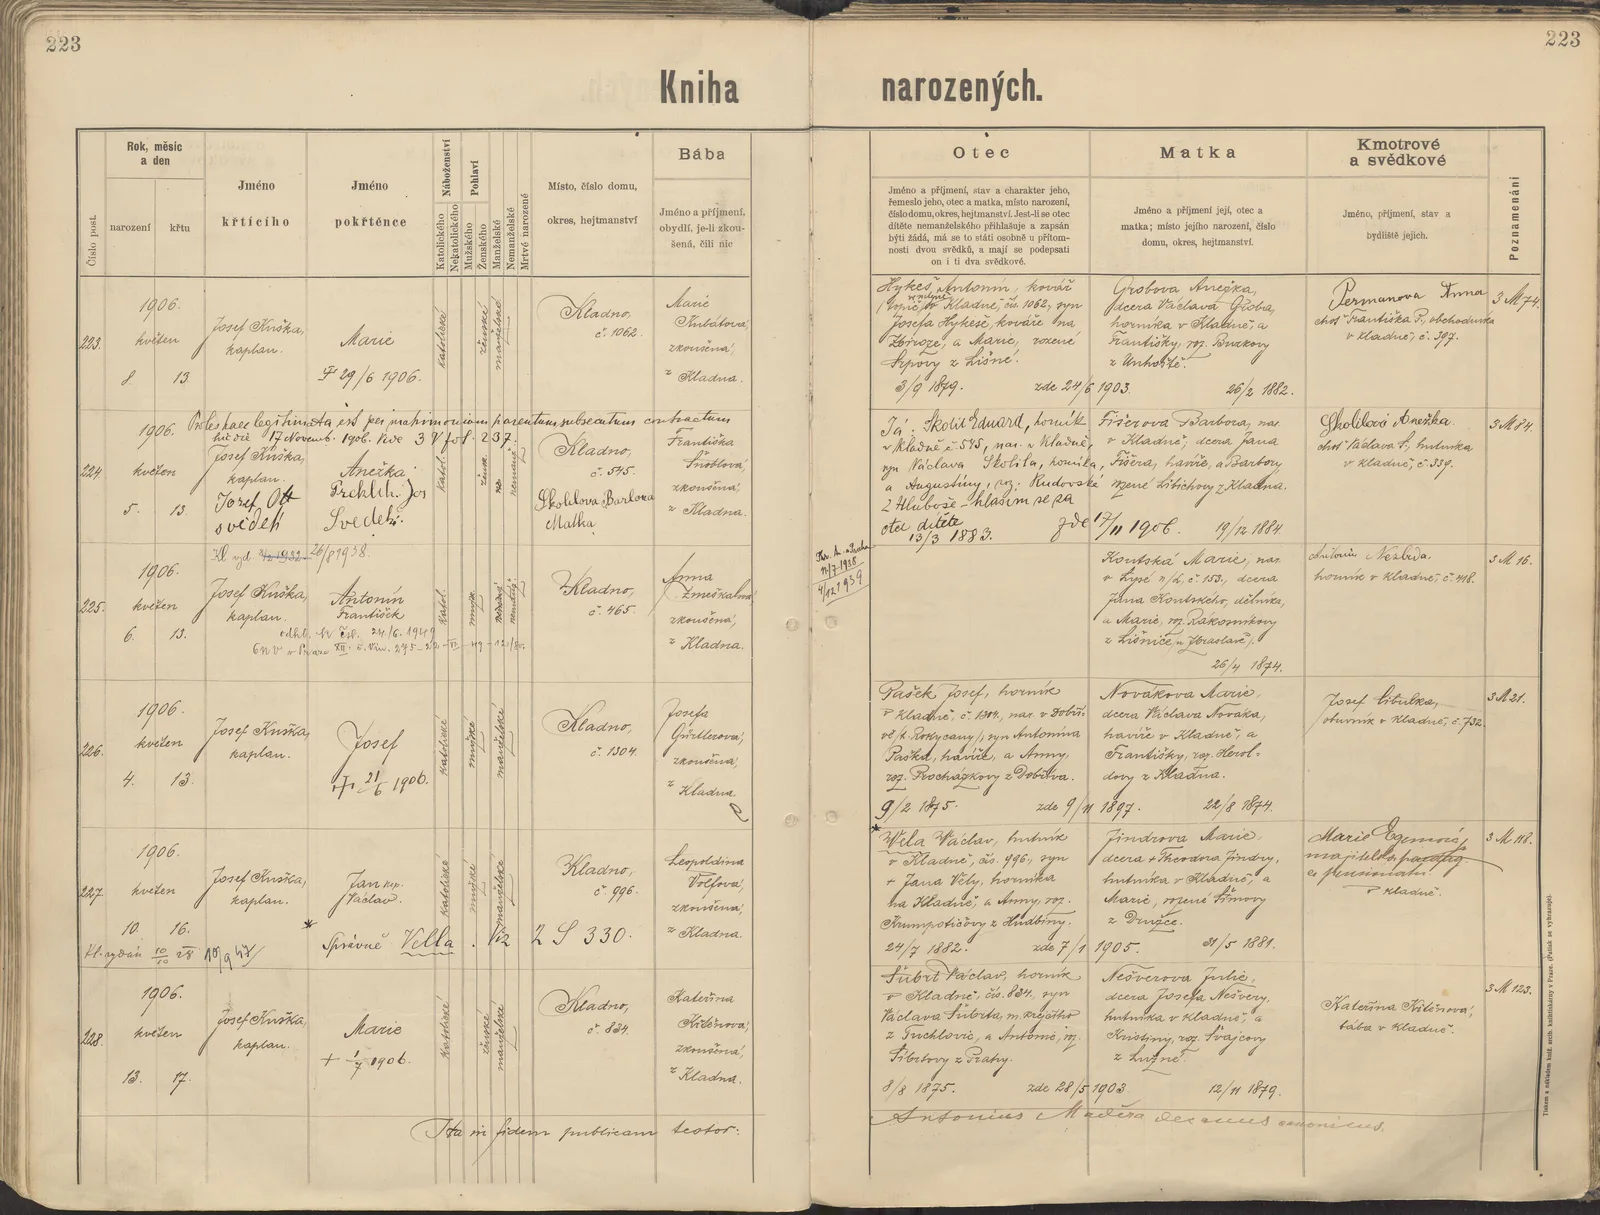 223
223
Kniha
narozených.
Číslo post.
Rok, měsíc
a den
narození
křtu
Jméno
křtícího
Jméno
pokřtěnce
Náboženství
Katolického
Nekatolického
Pohlaví
Mužského
Ženského
Manželské
Nemanželské
Mrtvě narozené
Místo, číslo domu,
okres, hejtmanství
Bába
Jméno a příjmení,
obydlí, je-li zkou-
šená, čili nic
Otec
Jméno a příjmení, stav a charakter jeho,
řemeslo jeho, otec a matka, místo narození,
číslo domu, okres, hejtmanství. Jest-li se otec
dítěte nemanželského přihlašuje a zapsán
býti žádá, má se to státi osobně u přítom-
nosti dvou svědků, a mají se podepsati
on i ti dva svědkové.
Matka
Jméno a příjmení její, otec a
matka; místo jejího narození, číslo
domu, okres, hejtmanství.
Kmotrové
a svědkové
Jméno, příjmení, stav a
bydliště jejich.
Poznamenání
223.
1906.
květen
8. 13.
Josef Kuška,
kaplan.
Marie
29/6 1906.
katolické
ženské
manželské
Kladno,
č. 1062.
Marie
Kubátová,
zkoušená,
z Kladna.
Hykeš Antonín, kovář
v Kladně, čís. 1062, syn
Josefa Hykeše, kováře na
Zbiroze, a Marie, rozené
Srpovy z Líšné.
3/9 1879. zde 24/6 1903.
Grobova Anežka,
dcera Václava Groba,
horníka v Kladně, a
Františky, roz. Burkovy
z Unhoště.
26/2 1882.
Permanova Anna
choť Františka P., obchodníka
v Kladně, č. 397.
3 M 74.
224.
1906.
květen
5. 13.
Proles haec legitimata est per matrimonium parentum subsecutum contractum
hic die 17 Novemb. 1906. vide 3 V fol. 237.
Josef Kuška,
kaplan.
Josef Ott
svědek
Anežka
Svedek.
katol.
žensk.
Kladno,
č. 545.
Skolilova Barbora
Matka
Františka
zkoušená,
z Kladna.
Já: Skolil Eduard, horník
v Kladně č. 545, nar. v Kladně,
syn Václava Skolila, horníka,
a Augustiny, roz. Rudovské
z Hluboše – hlásím se za
otce dítěte
13/3 1883. zde 17/11 1906.
Fišerova Barbora, nar.
v Kladně, dcera Jana
Fišera, havíře, a Barbory
rozené Libichovy z Kladna.
19/12 1884.
Skolilová Anežka
choť Václava S., hutníka
v Kladně, č. 339.
3 M 84.
225.
26/8 1938.
1906.
květen
6. 13.
Josef Kuška,
kaplan.
Antonín
František
24/6. 1949
katol.
Kladno,
č. 465.
Anna
Zmeškalová,
zkoušená,
z Kladna.
4/12 1939
Koutská Marie, nar.
v Lysé n/L, č. 153, dcera
Jana Koutského, dělníka,
a Marie, roz. Rakosníkovy
z Líšnice, u Jbraslavě.
26/4 1874.
Antonín Nezbeda.
horník v Kladně, č. 418.
3 M 16.
226.
1906.
květen
4. 13.
Josef Kuška,
kaplan.
Josef
21/6 1906.
katolické
mužské
manželské
Kladno,
č. 1304.
Josefa
Gürtlerova,
zkoušená,
z Kladna
Pašek Josef, horník
v Kladně, č. 1304, nar. v Dobří-
vě /h. Rokycany/, syn Antonína
Paška, havíře, a Anny,
roz. Procházkovy z Dobřiva.
9/2 1875. zde 9/11 1897.
Novákova Marie,
dcera Václava Nováka,
havíře v Kladně, a
Františky, roz. Herol-
dovy z Kladna.
22/8 1874.
Josef Cibulka,
obuvník v Kladně, č. 732.
3 M 21.
227.
1906.
květen
10. 16.
Josef Kuška,
kaplan.
Jan nep.
Václav.
* Správně Vella. Viz 2 S 330.
katolické
mužské
manželské
Kladno,
č. 996.
Leopoldina
Volfova,
zkoušená,
z Kladna.
* Wela Václav, hutník
v Kladně, čís. 996, syn
+ Jana Vely, horníka
na Kladně, a Anny, roz.
Krumpotičovy z Hudliny.
24/7 1882. zde 7/1 1905.
Jindrova Marie
dcera + Theodora Jindry,
hutníka v Kladně, a
Marie, rozené Šímovy
z Družce.
31/5 1881.
Marie
v Kladně.
3 M 118.
228.
1906.
květen
13. 17.
Josef Kuška,
kaplan.
Marie
+ 1/7 1906.
katolické
ženské
manželské
Kladno,
č. 834.
Kateřina
Kišénova,
zkoušená,
z Kladna.
Šubrt Václav, horník
v Kladně, čís. 834, syn
Václava Šubrta, m. krejčího
z Tuchlovic, a Antonie, roz.
Šibrtovy z Prahy.
8/8 1875. zde 28/5 1903.
Nešverova Julie,
dcera Josefa Nešvery,
hutníka v Kladně, a
Kristiny, roz. Švajcovy
z Lužné.
12/11 1879.
Kateřina Kišénová,
bába v Kladně.
3 M 123.
Ita in fidem publicam testor:
Antonius Maděra decanus canonicus.
Tiskem a nákladem kníž. arcib. knihtiskárny v Praze. (Patisk se vyhrazuje).